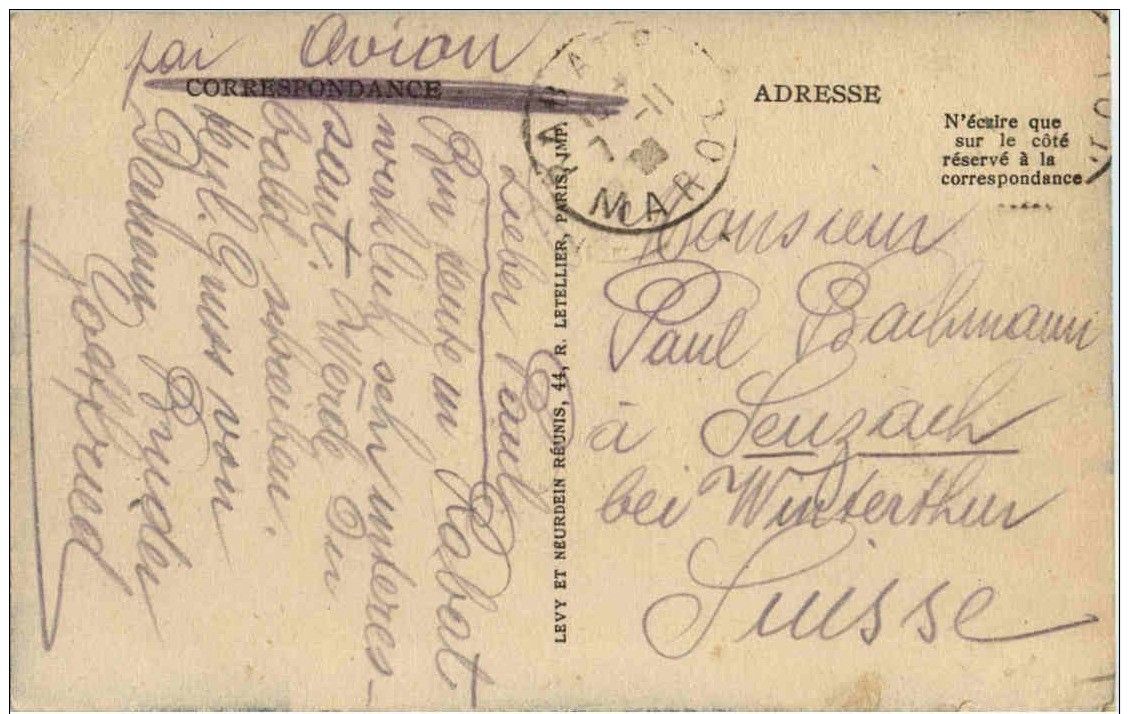 par Avion
CORRESPONDANCE
ADRESSE
N'écrire que
sur le côté
réservé à la
correspondance
MAR
Monsieur
Paul Bachmann
à Seuzach
bei Winterthur
Suisse
LEVY ET NEURDEIN RÉUNIS, 44, R. LETELLIER, PARIS, IMP.
Lieber Paul
Bin heute in Rabat
wirklich sehr interes-
sant. Werde Dir
bald schreiben.
Hzl. Gruss von
Deinem Bruder
Gottfried